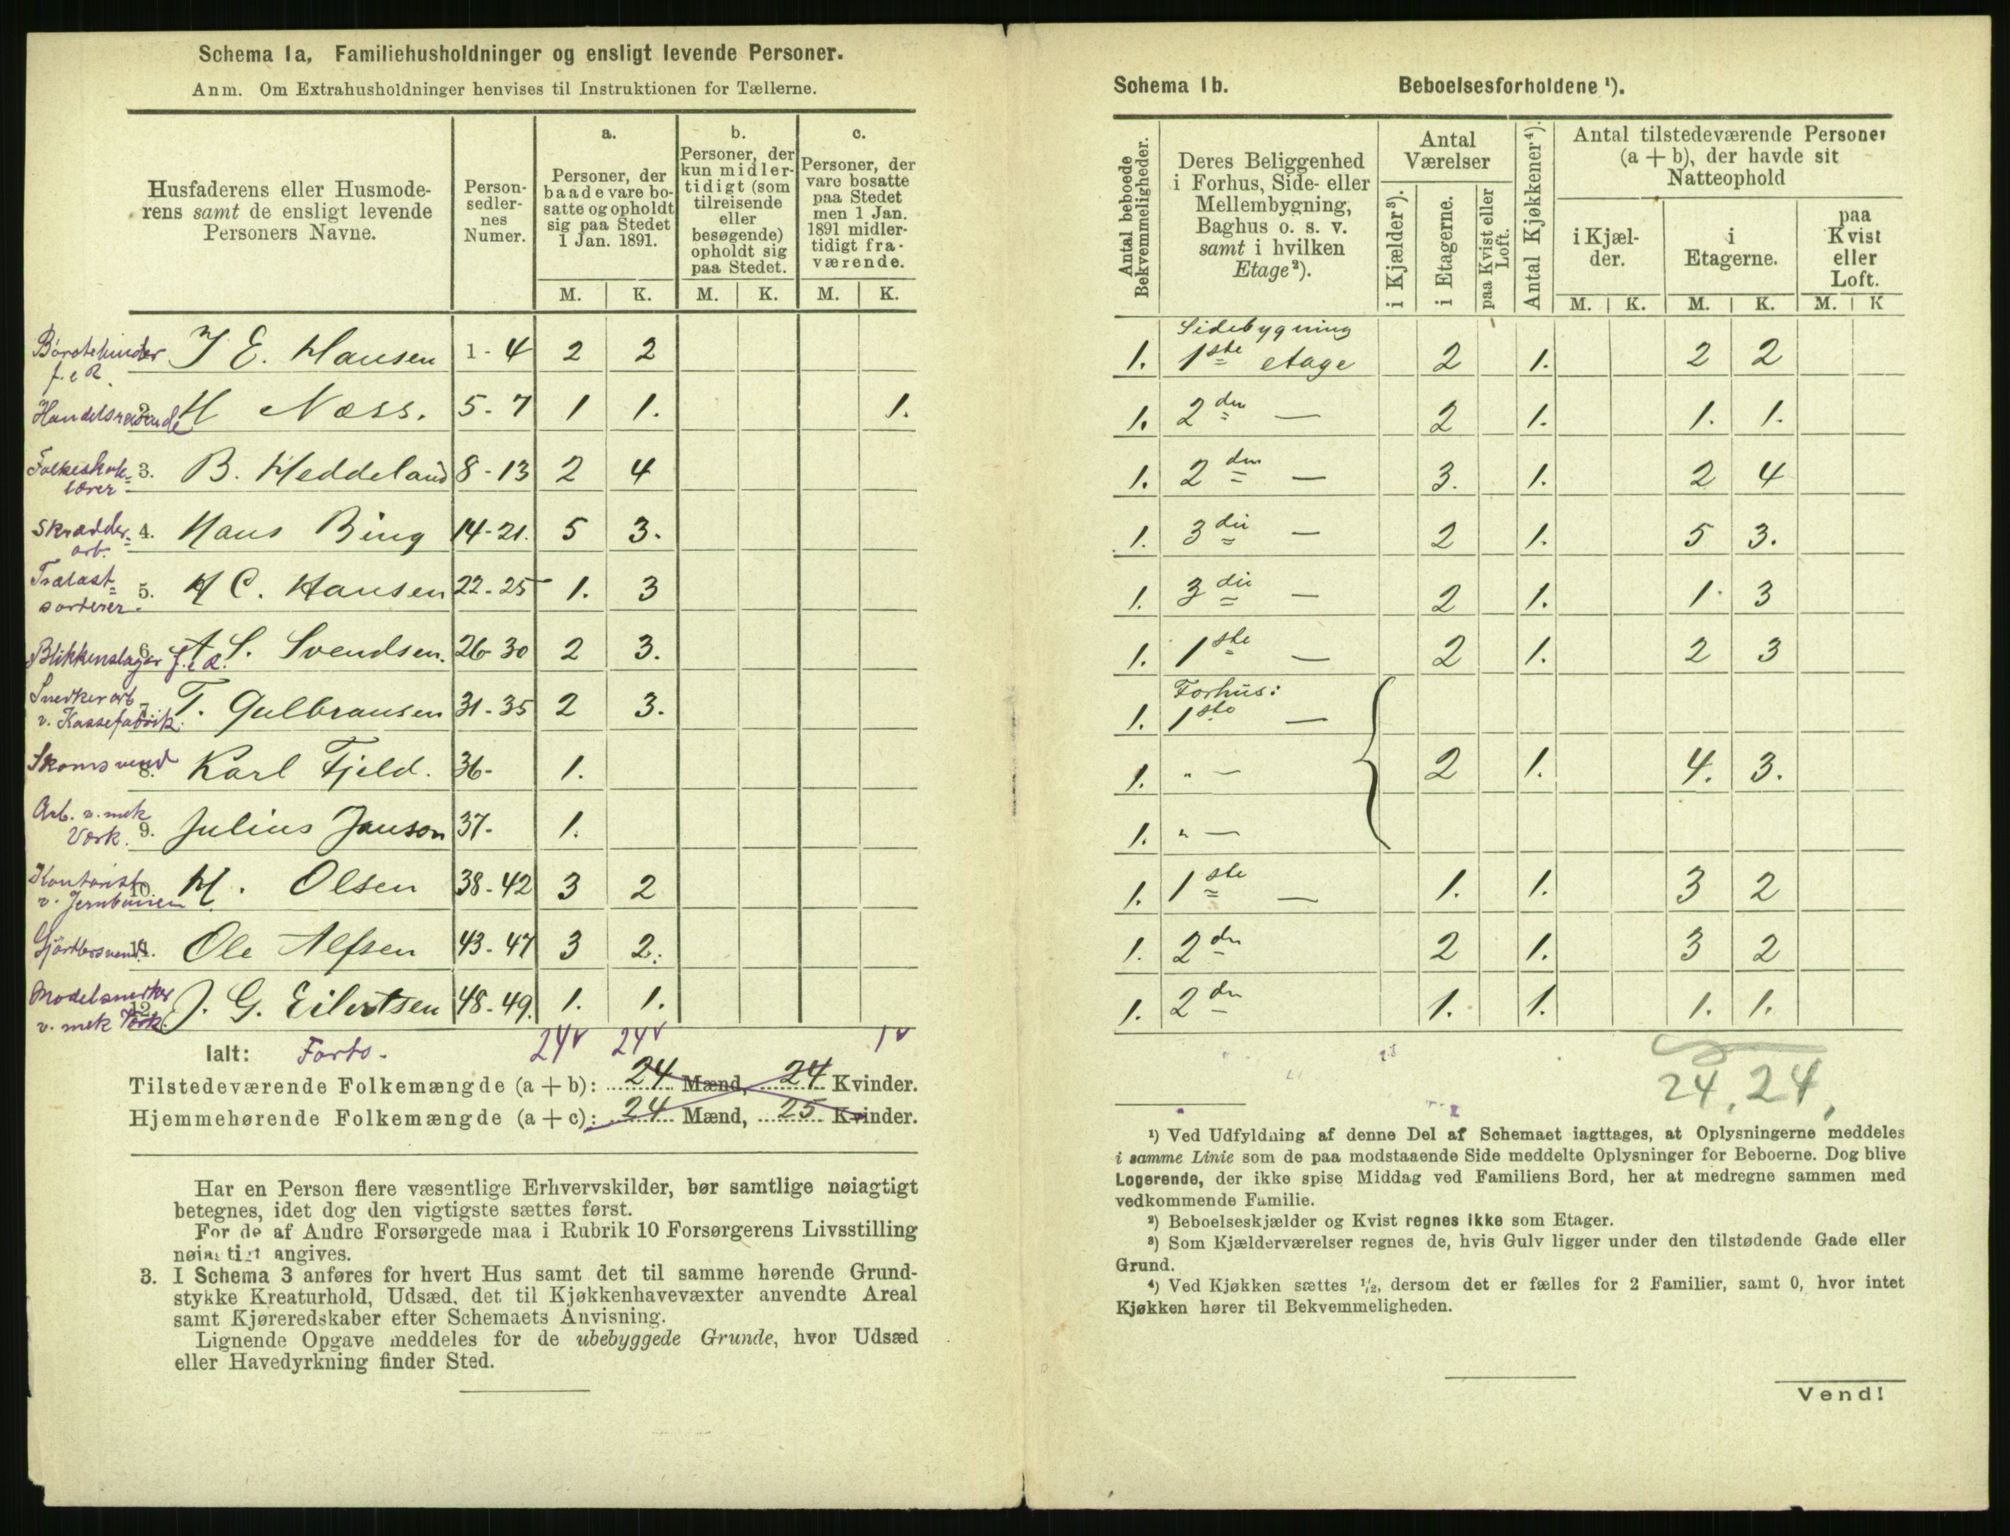 Schema 1a, Familiehusholdninger og ensligt levende Personer.
Anm. Om Extrahusholdninger henvises til Instruktionen for Tællerne.
Husfaderens eller Husmoderens samt de ensligt levende Personers Navne.
Personsedlernes Numer.
a. Personer, der baade vare bosatte og opholdt sig paa Stedet 1 Jan. 1891.
b. Personer, der kun midlertidigt (som tilreisende eller besøgende) opholdt sig paa Stedet.
c. Personer, der vare bosatte paa Stedet men 1 Jan. 1891 midlertidigt fraværende.
M. K. M. K. M. K.
J E. Hansen 1-4 2 2
Handelsreisende H Næss. 5-7 1 1. 1.
Folkeskolelærer 3. B. Heddeland 8-13 2 4
Skrædderarb. 4. Hans Bing 14-21. 5 3.
Trælastsorterer. 5. H C. Hansen 22-25 1. 3
Blikkenslager f. e R. 6. A S. Svendsen. 26-30 2 3.
Snedkerarb v. Kassefabrik. 7. T. Gulbransen 31-35 2 3.
Skomsvend 8. Karl Fjeld. 36- 1.
Arb. v. mek Værk. 9. Julius Janson 37- 1.
Kontorist v. Jernbanen 10. H. Olsen 38-42 3 2
11. Ole Alfsen 43-47 3 2.
Modelsnerker v. mek Værk. 12. J. G. Eilertsen 48-49. 1. 1.
Ialt: Forts. 24 24 1
Tilstedeværende Folkemængde (a + b): 24 Mænd, 24 Kvinder.
Hjemmehørende Folkemængde (a + c): 24 Mænd, 25 Kvinder.
Har en Person flere væsentlige Erhvervskilder, bør samtlige nøiagtigt
betegnes, idet dog den vigtigste sættes først.
For de af Andre Forsørgede maa i Rubrik 10 Forsørgerens Livsstilling
nøiagtigt angives.
3. I Schema 3 anføres for hvert Hus samt det til samme hørende Grund-
stykke Kreaturhold, Udsæd, det til Kjøkkenhavevæxter anvendte Areal
samt Kjøreredskaber efter Schemaets Anvisning.
Lignende Opgave meddeles for de ubebyggede Grunde, hvor Udsæd
eller Havedyrkning finder Sted.
Schema 1b. Beboelsesforholdene ¹).
Antal beboede Bekvemmeligheder.
Deres Beliggenhed i Forhus, Side- eller Mellembygning, Baghus o. s. v. samt i hvilken Etage²).
Antal Værelser
i Kjælder³). i Etagerne. paa Kvist eller Loft.
Antal Kjøkkener⁴).
Antal tilstedeværende Personer (a + b), der havde sit Natteophold
i Kjælder. i Etagerne. paa Kvist eller Loft.
M. K. M. K. M. K
Sidebygning
1. 1ste etage 2 1. 2 2
1. 2den — 2 1. 1. 1.
1. 2den — 3. 1. 2 4
1. 3die — 2 1. 5 3.
1. 3die — 2 1. 1. 3
1. 1ste — 2 1. 2 3
Forhus:
1. 1ste —
1. " — 2 1. 4. 3.
1. " —
1. 1ste — 1. 1. 3 2
1. 2dn 2 1. 3 2
1. 2dn 1. 1. 1. 1.
24. 24.
¹) Ved Udfyldning af denne Del af Schemaet iagttages, at Oplysningerne meddeles
i samme Linie som de paa modstaaende Side meddelte Oplysninger for Beboerne. Dog blive
Logerende, der ikke spise Middag ved Familiens Bord, her at medregne sammen med
vedkommende Familie.
²) Beboelseskjælder og Kvist regnes ikke som Etager.
³) Som Kjælderværelser regnes de, hvis Gulv ligger under den tilstødende Gade eller
Grund.
⁴) Ved Kjøkken sættes ½, dersom det er fælles for 2 Familier, samt 0, hvor intet
Kjøkken hører til Bekvemmeligheden.
Vend!